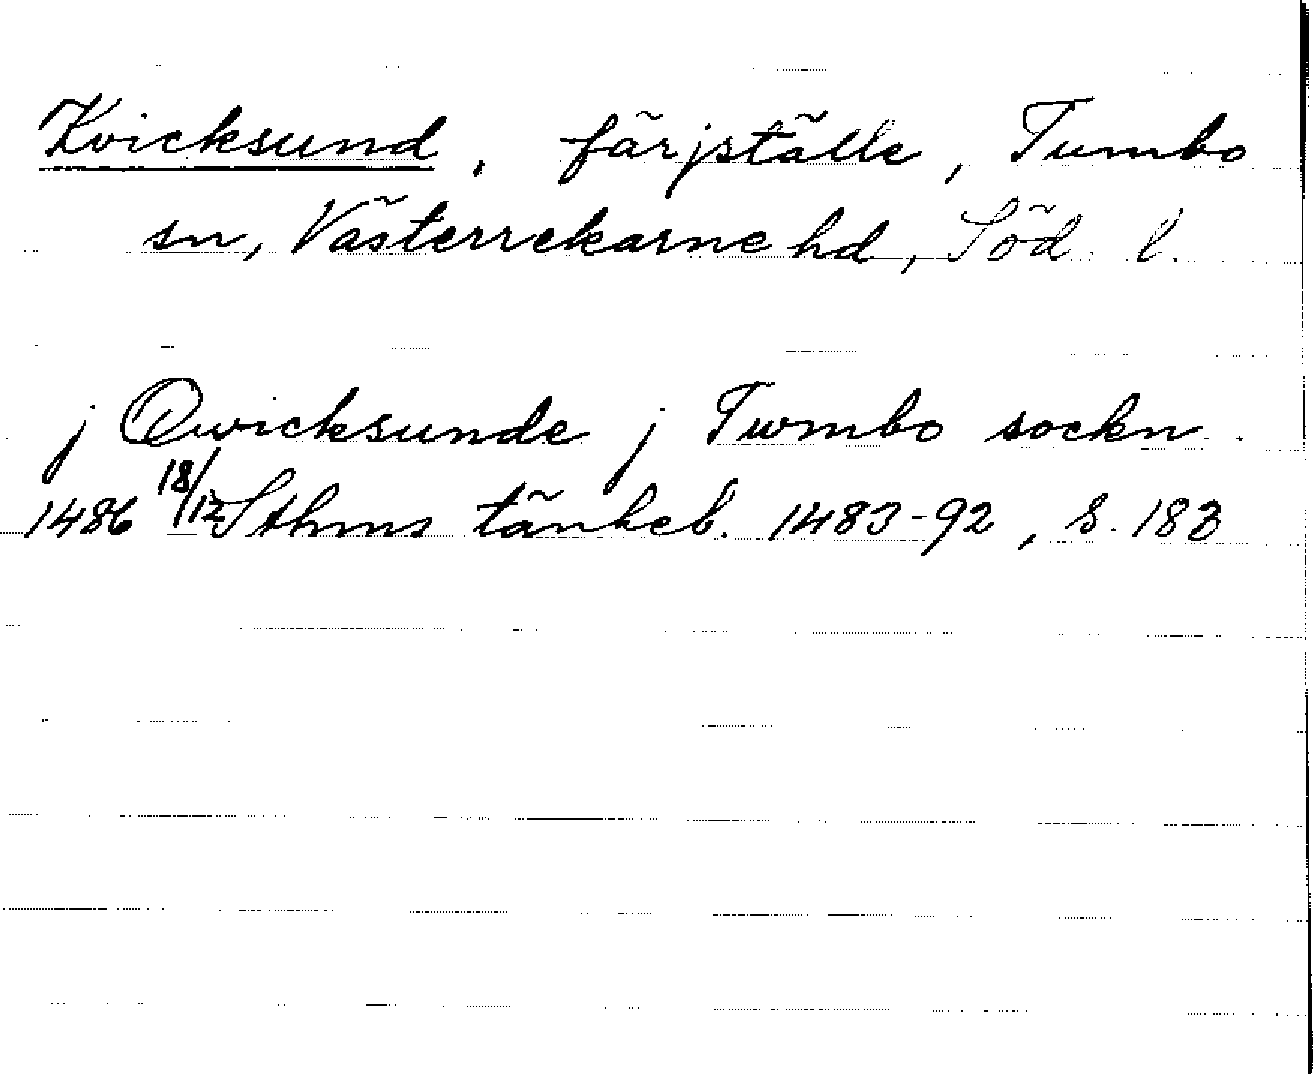 Kvicksund, färjställe, Tumbo
sn, Västerrekarne hd, Söd. l.
j Qwicksunde j Twmbo sockn.
1486 18/12 Sthms tänkeb. 1483-92, s. 183